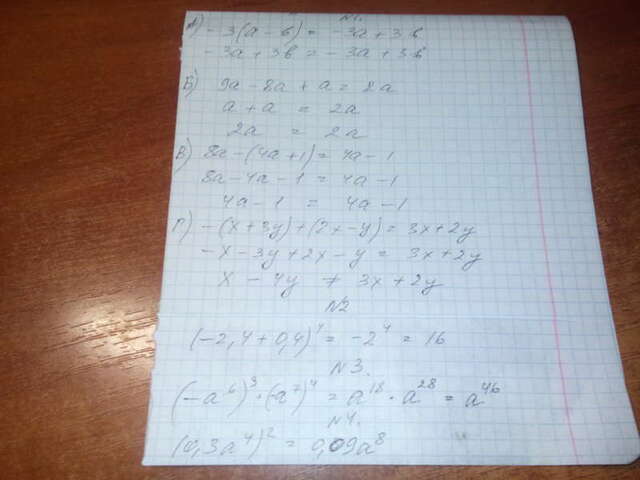 №1.
А) - 3(a - в) = -3a + 3в
- 3a + 3в = - 3a + 3в
Б) 9a - 8a + a = 2a
a + a = 2a
2a = 2a
В) 8a - (4a + 1) = 4a - 1
8a - 4a - 1 = 4a - 1
4a - 1 = 4a - 1
Г) - (x + 3y) + (2x - y) = 3x + 2y
- x - 3y + 2x - y = 3x + 2y
x - 4y ≠ 3x + 2y
№2
(-2,4 + 0,4)⁴ = -2⁴ = 16
№3.
(-a⁶)³ · (-a⁷)⁴ = a¹⁸ · a²⁸ = a⁴⁶
№4.
(0,3a⁴)² = 0,09a⁸